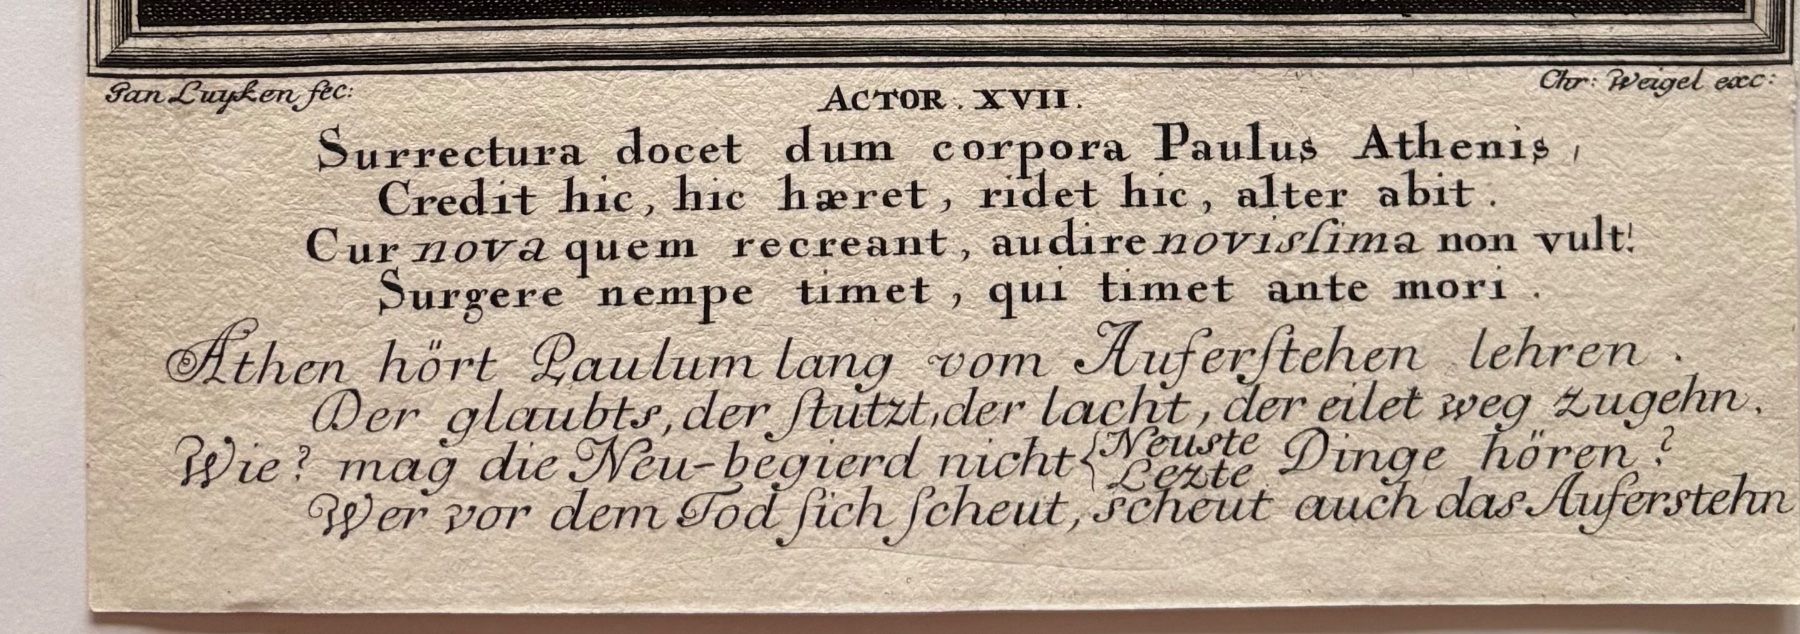 Jan Luyken fec:
Chr: Weigel exc:
ACTOR. XVII.
Surrectura docet dum corpora Paulus Athenis,
Credit hic, hic hæret, ridet hic, alter abit.
Cur nova quem recreant, audire novisſima non vult!
Surgere nempe timet, qui timet ante mori.
Athen hört Paulum lang vom Auferſtehen lehren.
Der glaubts, der ſtutzt, der lacht, der eilet weg zugehn.
Wie? mag die Neu-begierd nicht { Neuste Lezte Dinge hören?
Wer vor dem Tod ſich ſcheut, scheut auch das Auferstehn